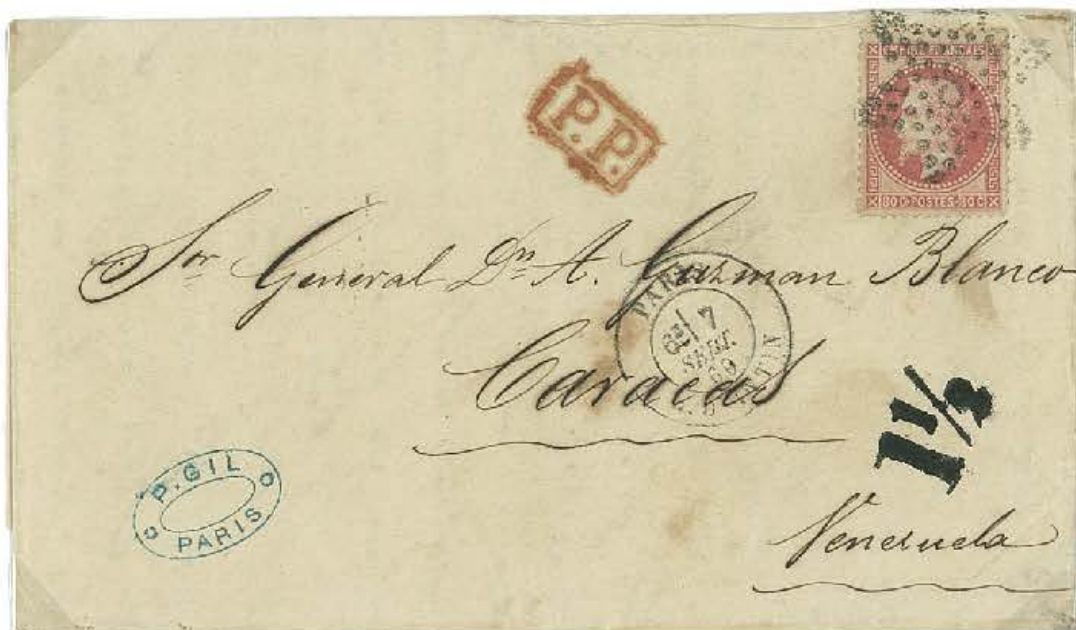 EMPIRE FRANÇAIS
80 C POSTES 80 C
P.P.
Sor General Dn A. Guzman Blanco
PARIS
7
SEPT.
69
Caracas
1½
P. GIL
PARIS
Venezuela